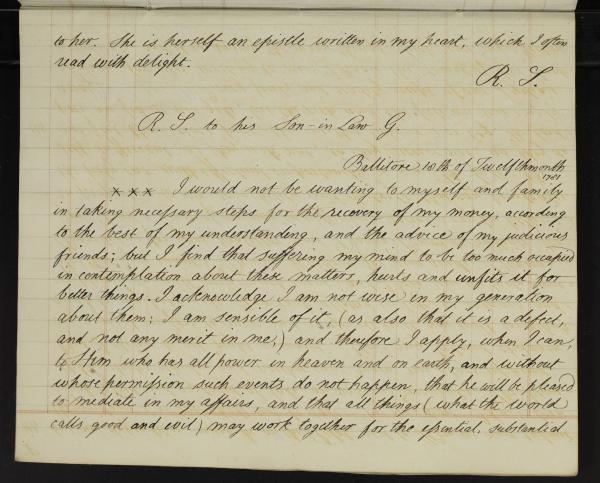 to her. She is herself an epistle written in my heart, which I often
read with delight.
R. S.
R. S. to his Son-in Law G.
Ballitore 18th of Twelfthmonth
1781
x x x I would not be wanting to myself and family
in taking necessary steps for the recovery of my money, acording
to the best of my understanding, and the advice of my judicious
friends; but I find that suffering my mind to be too much occupied
in contemplation about these matters, hurts and unfits it for
better things. I acknowledge I am not wise in my generation
about them; I am sensible of it, (as also that it is a defect,
and not any merit in me,) and therefore I apply, when I can,
to Him who has all power in heaven and on earth, and without
whose permission such events do not happen, that he will be pleased
to mediate in my affairs, and that all things (what the world
calls good and evil) may work together for the essential, substantial